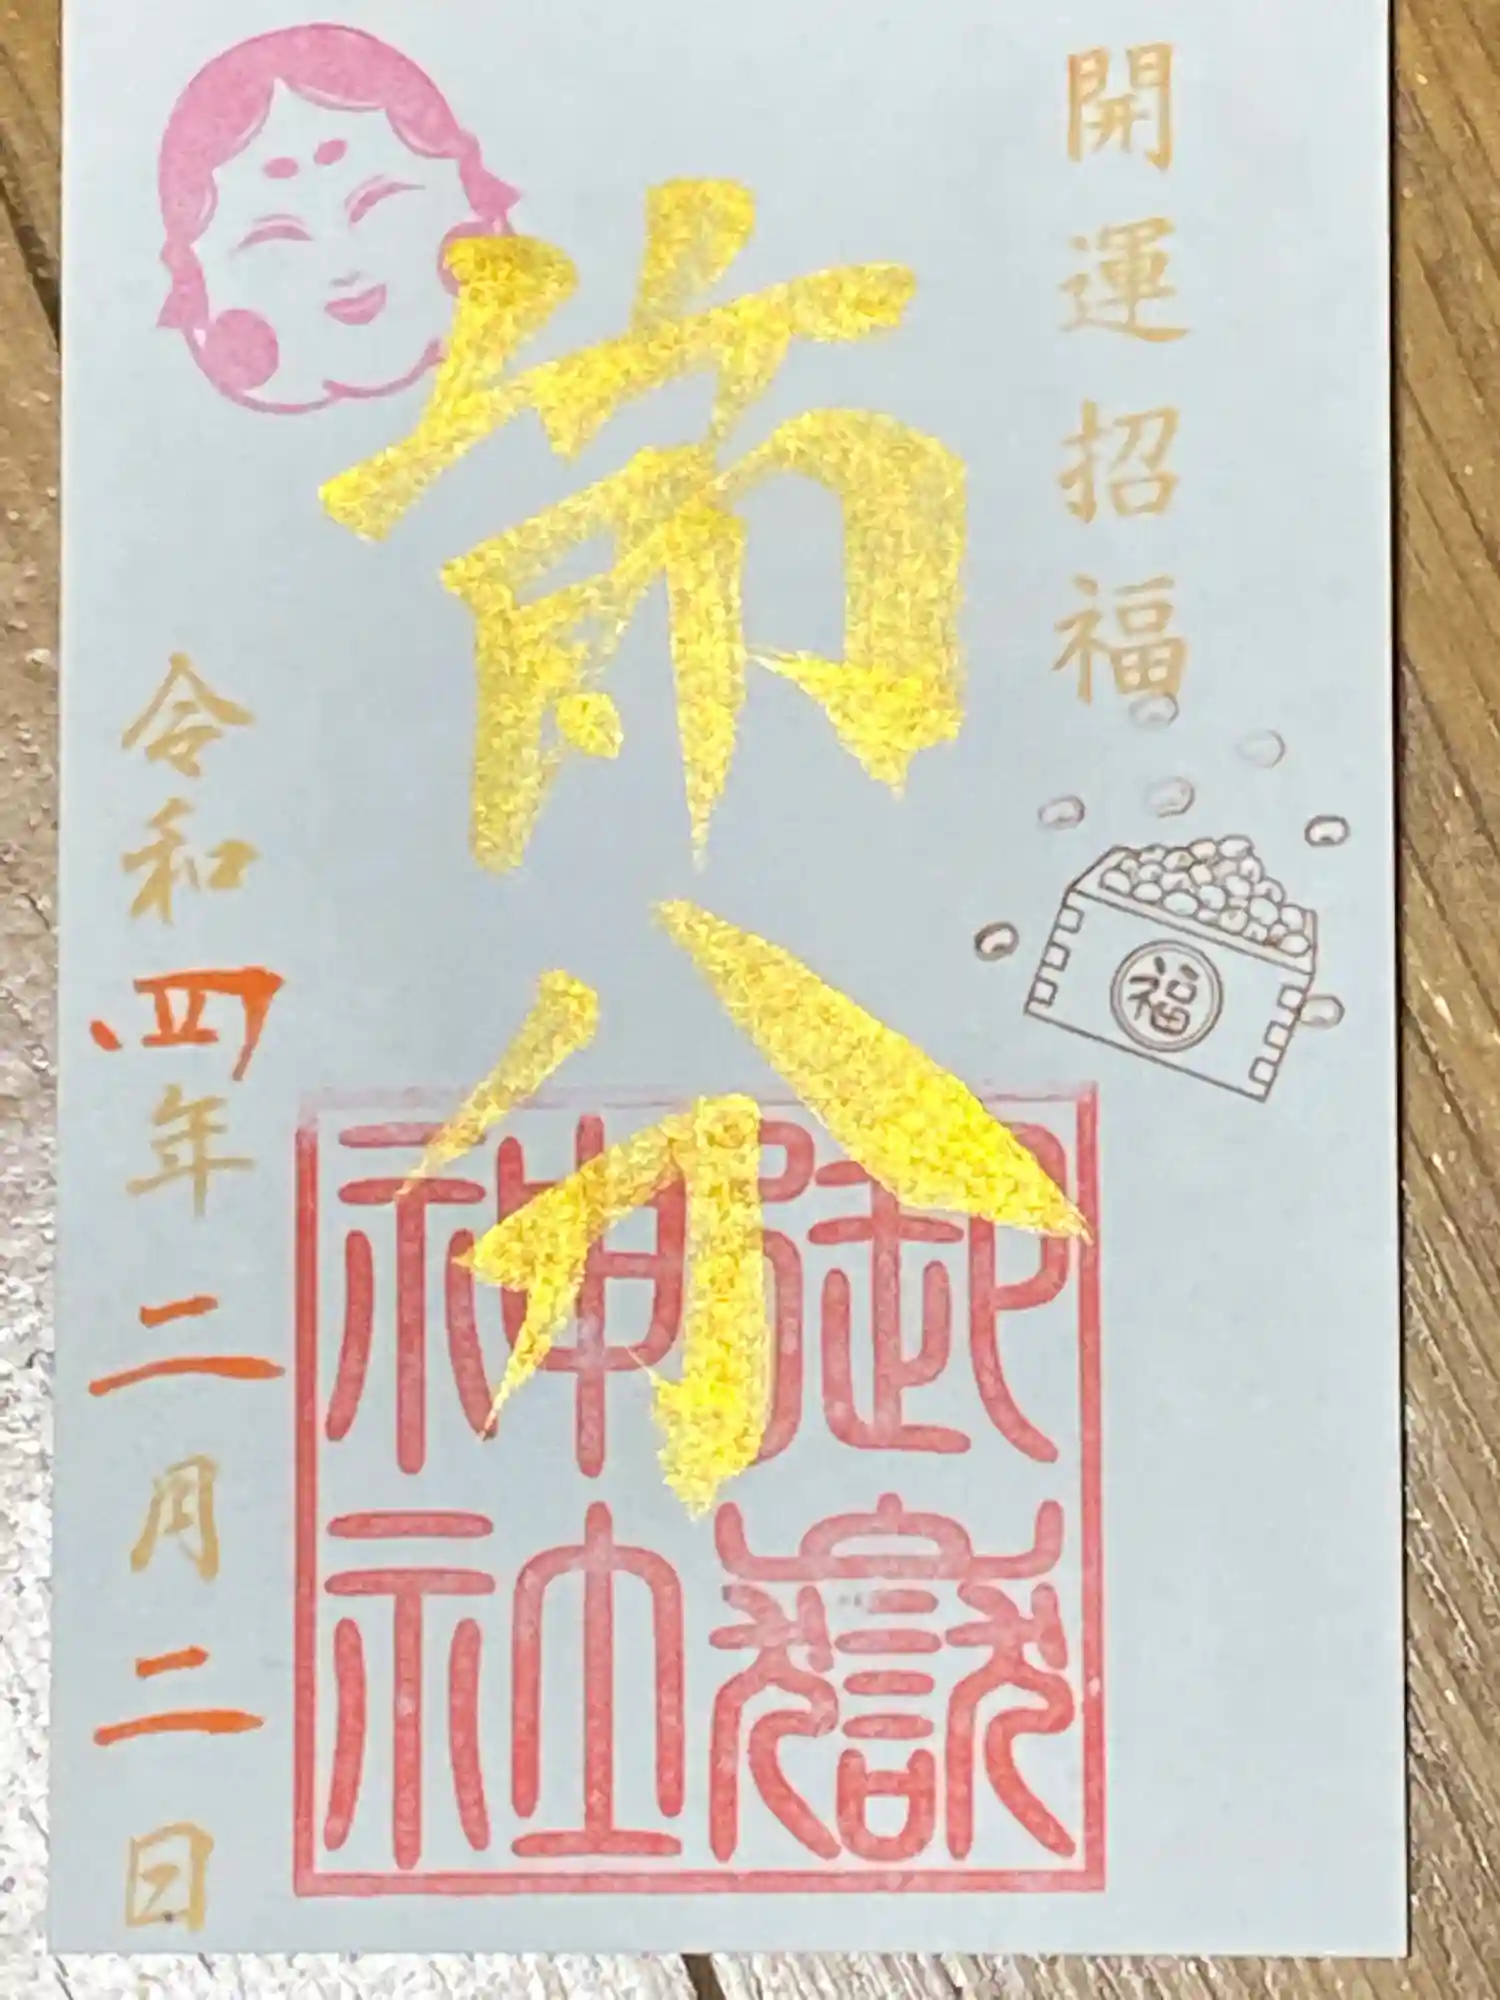 開運招福
福
節分
御嶽
神社
令和四年二月二日